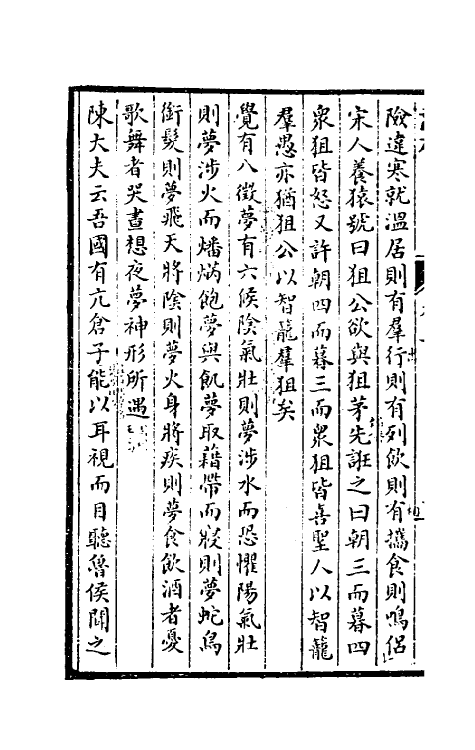 險違寒就溫居則有羣行則有列飲則有攜食則鳴侶
宋人養猿號曰狙公欲與狙茅先誑之曰朝三而暮四
衆狙皆怒又許朝四而暮三而衆狙皆喜聖人以智籠
羣愚亦猶狙公以智籠羣狙矣
覺有八徵夢有六候陰氣壯則夢涉水而恐懼陽氣壯
則夢涉火而燔焫飽夢與飢夢取藉帶而寢則夢蛇鳥
銜髮則夢飛天將陰則夢火身將疾則夢食飲酒者憂
歌舞者哭晝想夜夢神形所遇
陳大夫云吾國有亢倉子能以耳視而目聽魯侯聞之